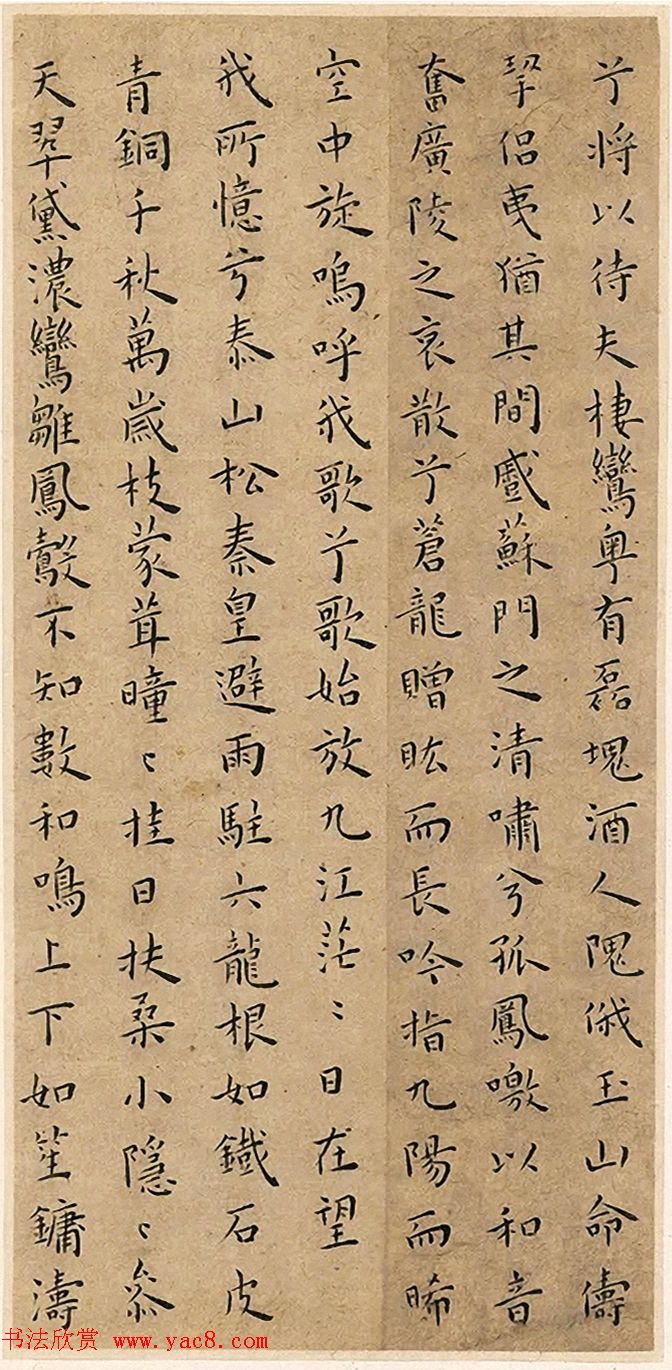 兮将以待夫棲鸞粤有磊塊酒人隗俄玉山命儔
挈侣夷猶其間感蘇門之清嘯兮孤鳳噭以和音
奮廣陵之哀散兮蒼龍贈眩而長吟指九陽而晞
空中旋嗚呼我歌兮歌始放九江茫〻日在望
我所憶兮泰山松秦皇避雨駐六龍根如鐵石皮
青銅千秋萬歲枝蒙茸曈〻挂日扶桑小隱〻參
天翠黛濃鸞雛鳳鷇不知數和鳴上下如笙鏞濤
书法欣赏 www.yac8.com